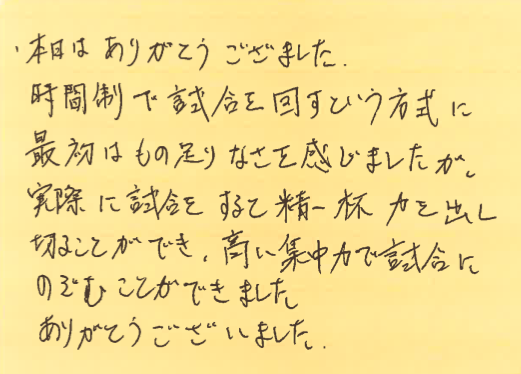 ・本日はありがとうござました.
時間制で試合を回すという方式に
最初はもの足りなさを感じましたが、
実際に試合をすると精一杯力を出し
切ることができ、高い集中力で試合に
のぞむことができました
ありがとうございました.